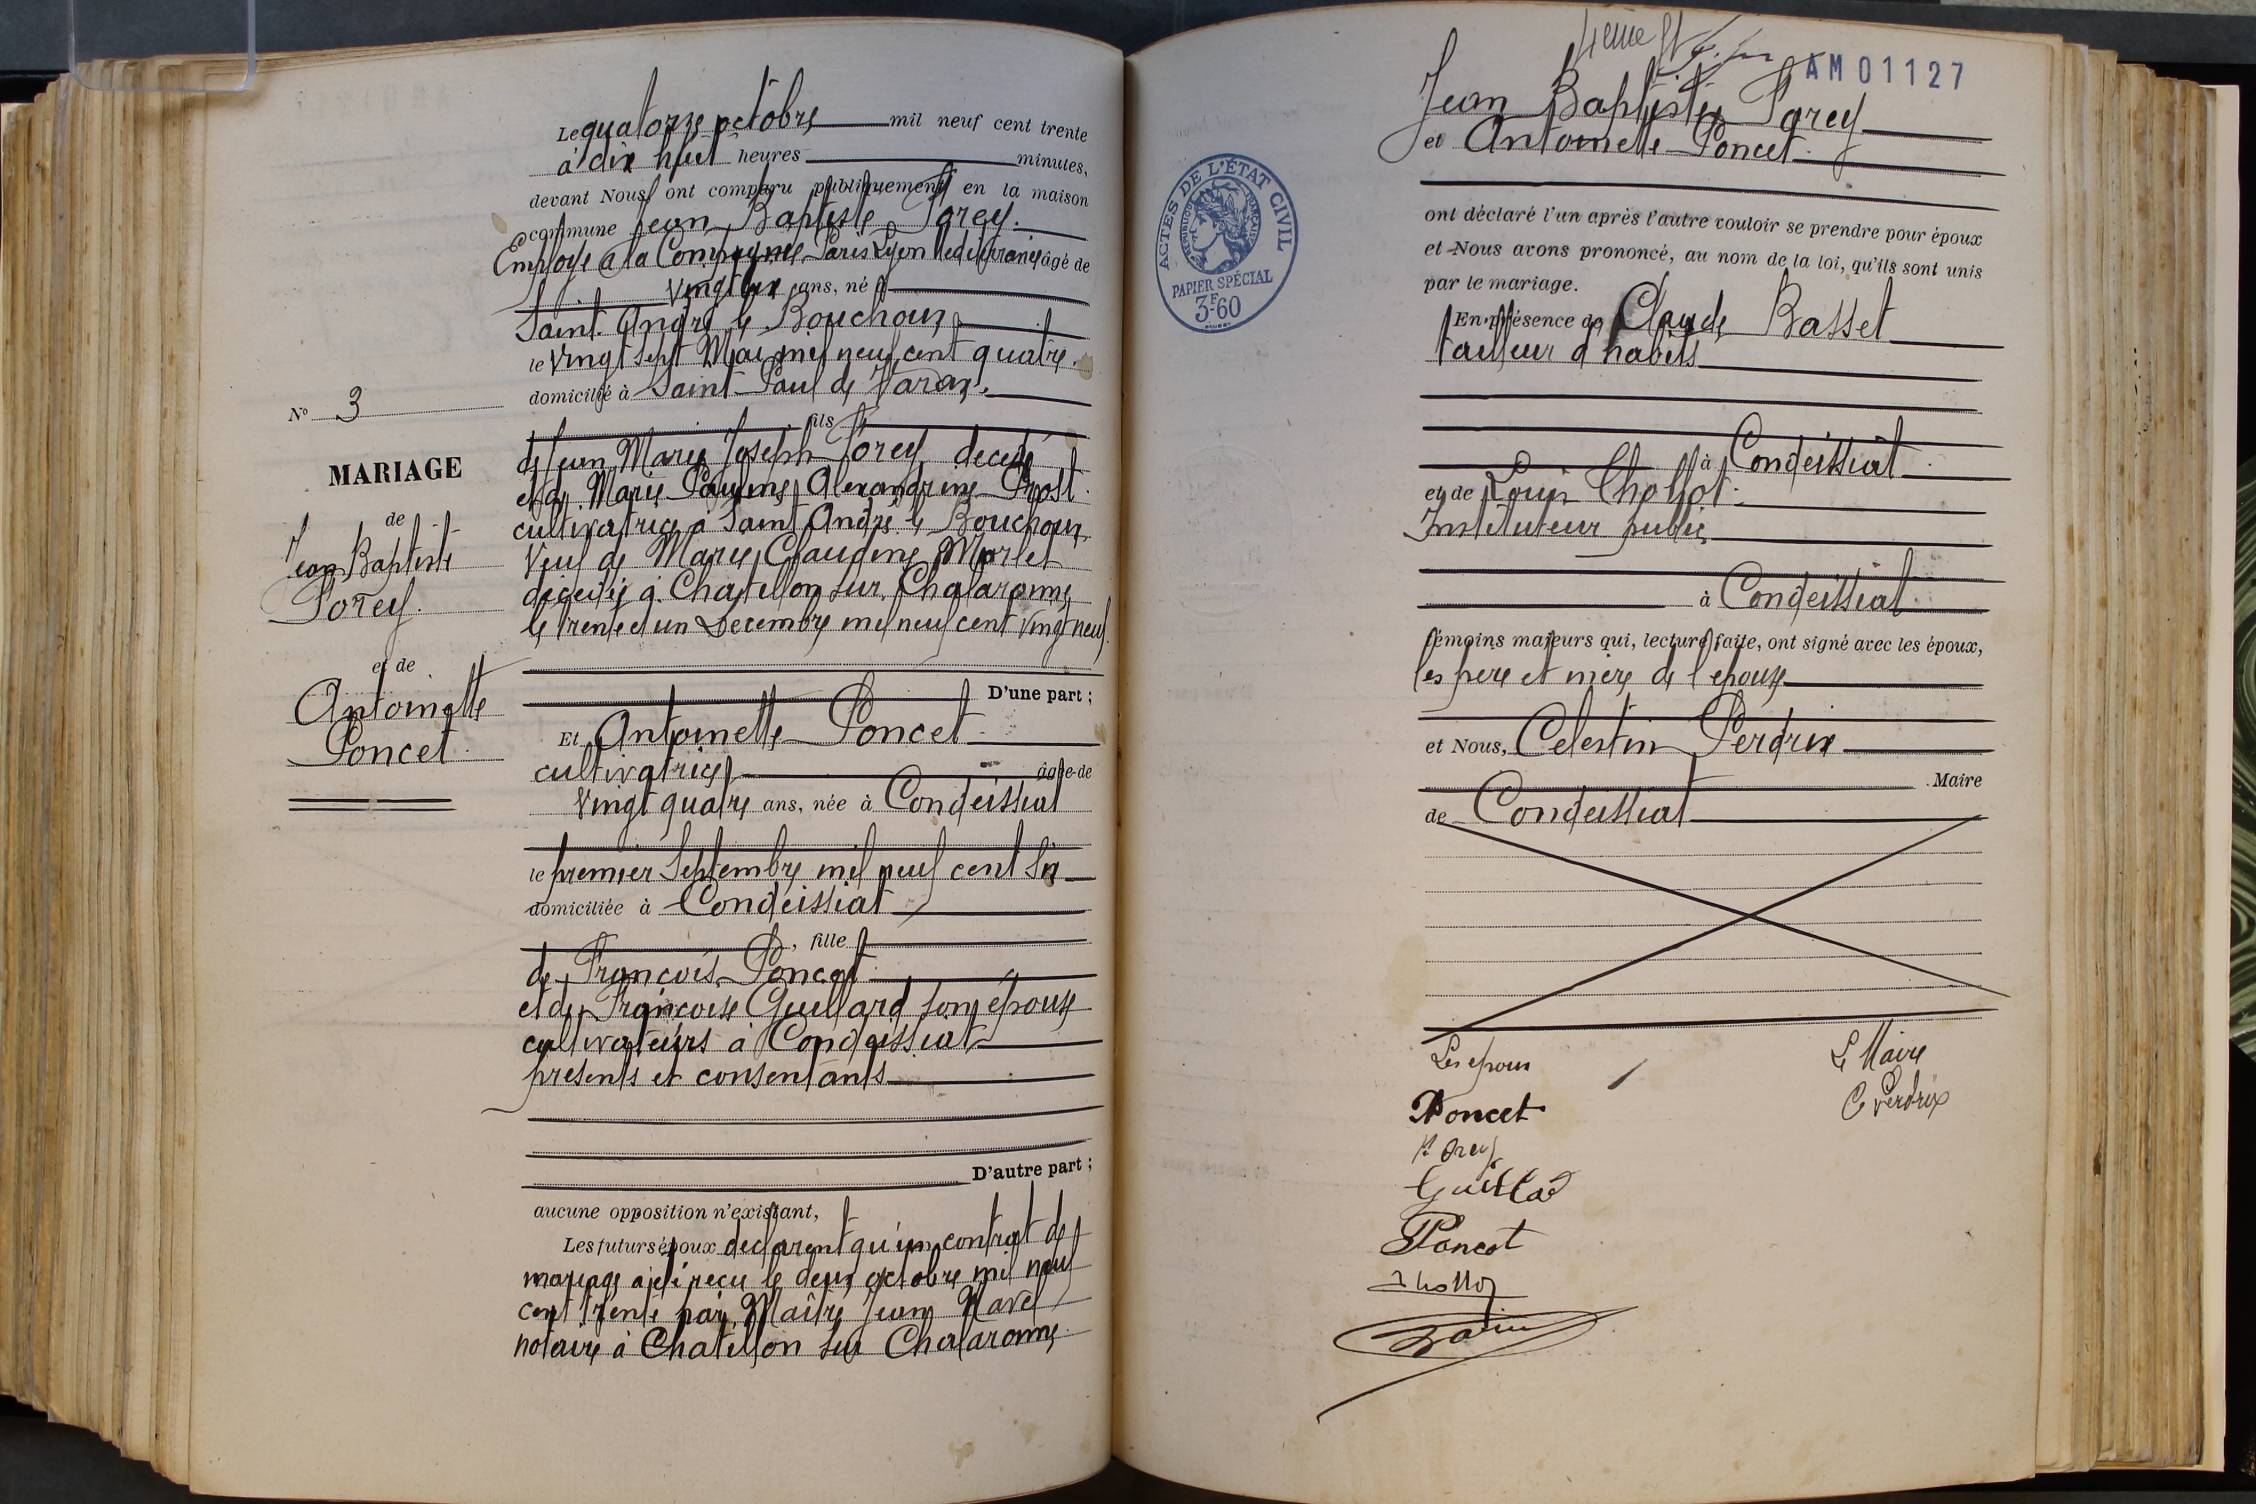 Le quatorze octobre mil neuf cent trente
à dix huit heures minutes,
devant Nous ont comparu publiquement en la maison
commune Jean Baptiste Porey.
Employé a la Compagnie Paris Lyon Mediterranée âgé de
vingt six ans, né à
Saint André le Bouchoux
le vingt sept Mai mil neuf cent quatre.
domicilié à Saint Paul de Varax.
fils
de Jean Marie Joseph Porey decedé
et de Marie Pauline Alexandrine Prost.
cultivatrice a Saint André le Bouchoux
Veuf de Marie Claudine Morlet
decedée à Chatillon sur Chalaronne
le trente et un Decembre mil neuf cent vingt neuf.
D'une part ;
Et Antoinette Poncet
cultivatrice âgée de
vingt quatre ans, née à Condeissiat
le premier Septembre mil neuf cent six
domiciliée à Condeissiat
, fille
de François Poncet
et de Françoise Guillard son épouse
cultivateurs à Condeissiat
présents et consentants
D'autre part ;
aucune opposition n'existant,
Les futurs époux declarent qu'un contrat de
mariage a été reçu le deux octobre mil neuf
cent trente par Maître Jean Navel
notaire à Chatillon sur Chalaronne
No 3
MARIAGE
de
Jean Baptiste
Porey.
et de
Antoinette
Poncet.
AM01127
Jean Baptiste Porey
et Antoinette Poncet.
ont déclaré l'un après l'autre vouloir se prendre pour époux
et Nous avons prononcé, au nom de la loi, qu'ils sont unis
par le mariage.
En présence de Claude Basset
tailleur d'habits
à Condeissiat
et de Louis Chollot
Instituteur public
à Condeissiat
témoins majeurs qui, lecture faite, ont signé avec les époux,
les père et mère de l'epouse
et Nous, Celestin Perdrix
Maire
de Condeissiat
Les epoux
Le Maire
Poncet
C Perdrix
Porey
Poncet
ACTES DE L'ÉTAT CIVIL
RÉPUBLIQUE FRANÇAISE
PAPIER SPÉCIAL
3F60